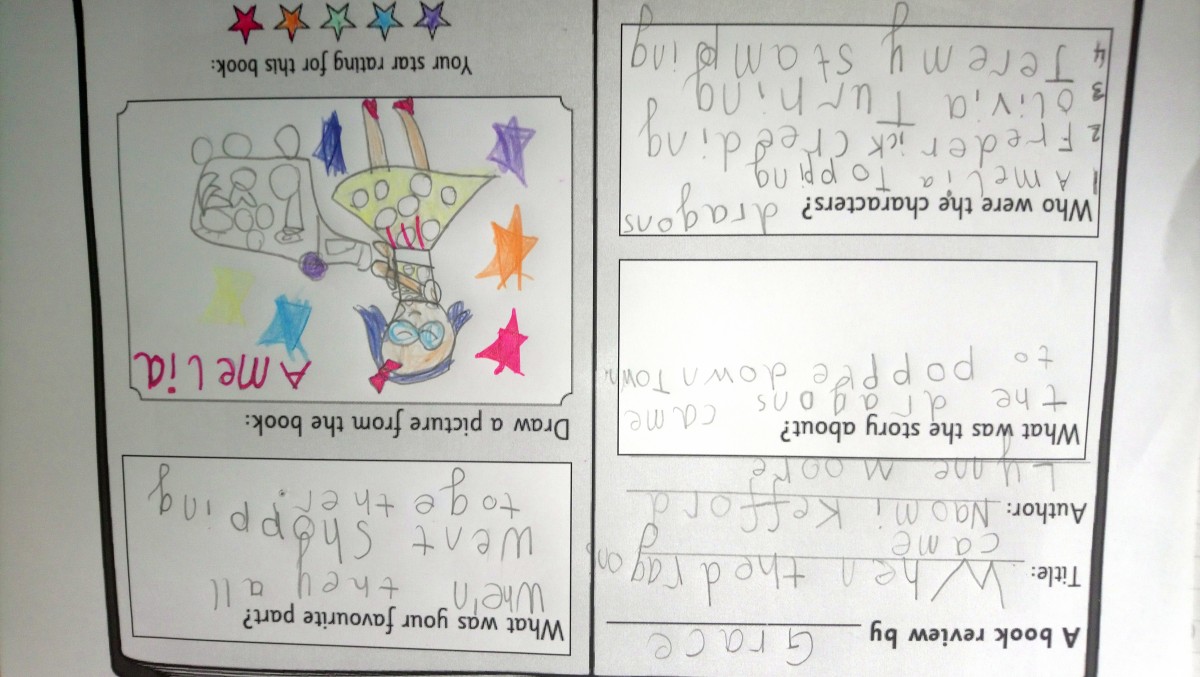 A book review by Grace
Title: When the dragons
came
Author: Naomi Kefford
Lynne Moore
What was the story about?
the dragons came
to popple down Town
Who were the characters? dragons
1 Amelia Topping
2 Frederick Creeding
3 Olivia Turning
4 Jeremy stamping
What was your favourite part?
When they all
went Shopping
together.
Draw a picture from the book:
Amelia
Your star rating for this book: